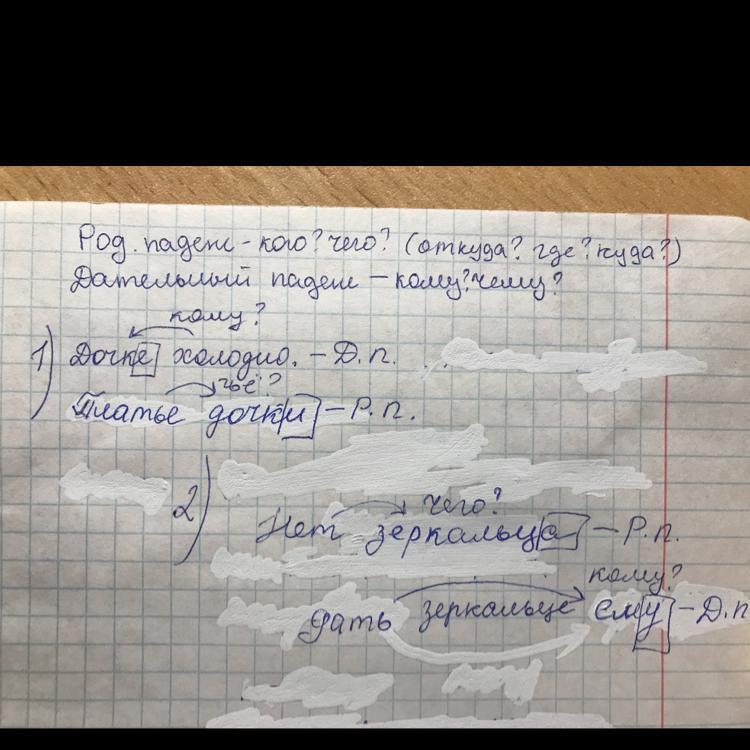 Род. падеж - кого? чего? (откуда? где? куда?)
Дательный падеж - кому? чему?
кому?
1) Дочке холодно. - Д.п.
чьё?
Платье дочки - Р.п.
чего?
2) Нет зеркальца - Р.п.
кому?
Дать зеркальце ему - Д.п